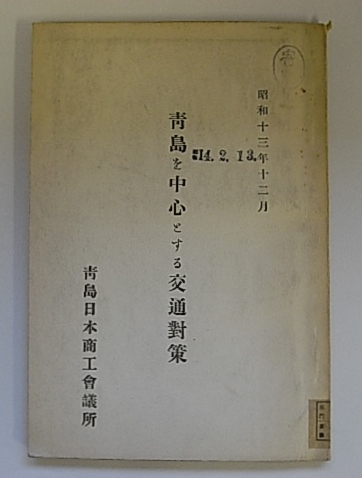 昭和十三年十二月
14. 2. 13.
靑島を中心とする交通對策
靑島日本商工會議所